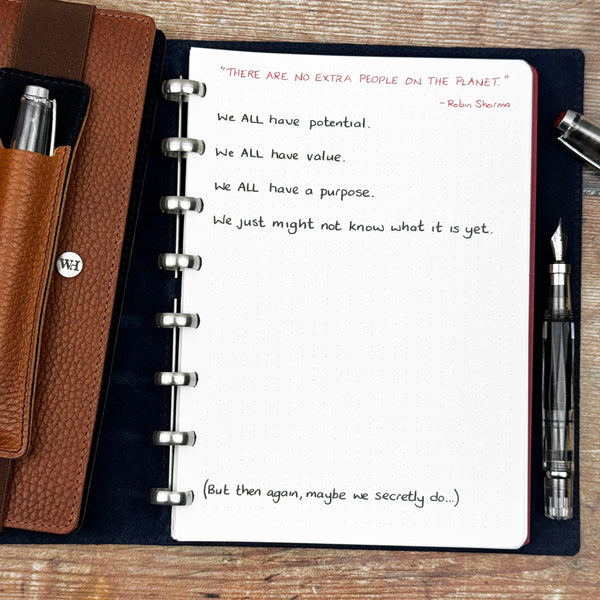 WH
"THERE ARE NO EXTRA PEOPLE ON THE PLANET."
- Robin Sharma
We ALL have potential.
We ALL have value.
We ALL have a purpose.
We just might not know what it is yet.
(But then again, maybe we secretly do...)